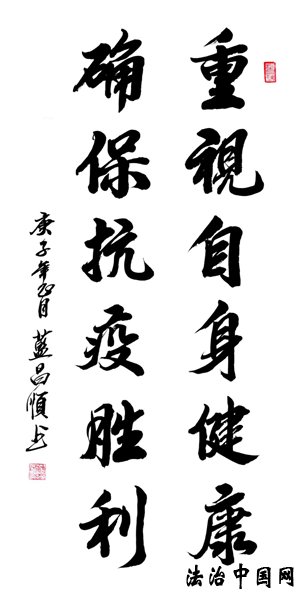 重視自身健康
确保抗疫胜利
庚子年正月蓝昌顺书
法治中国网